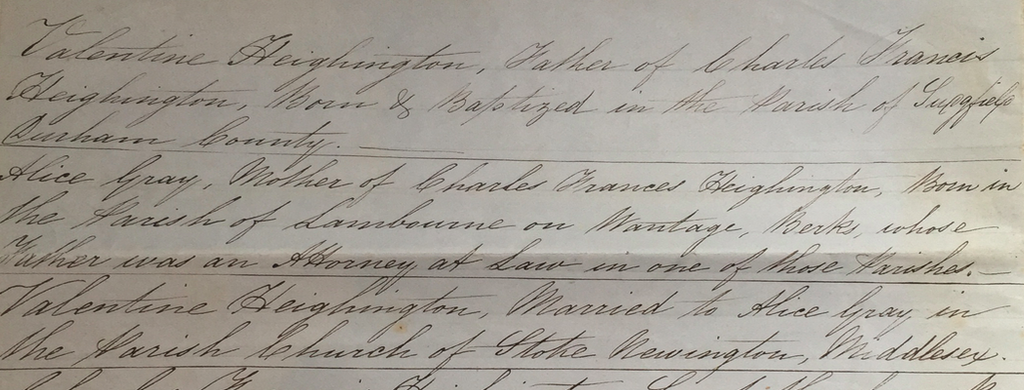 Valentine Heighington, Father of Charles Francis
Heighington, Born & Baptized in the Parish of
Durham County.
Alice Gray, Mother of Charles Frances Heighington, Born in
the Parish of Lambourne on Wantage, Berks, whose
Father was an Attorney at Law in one of those Parishes.—
Valentine Heighington, Married to Alice Gray in
the Parish Church of Stoke Newington, Middlesex.